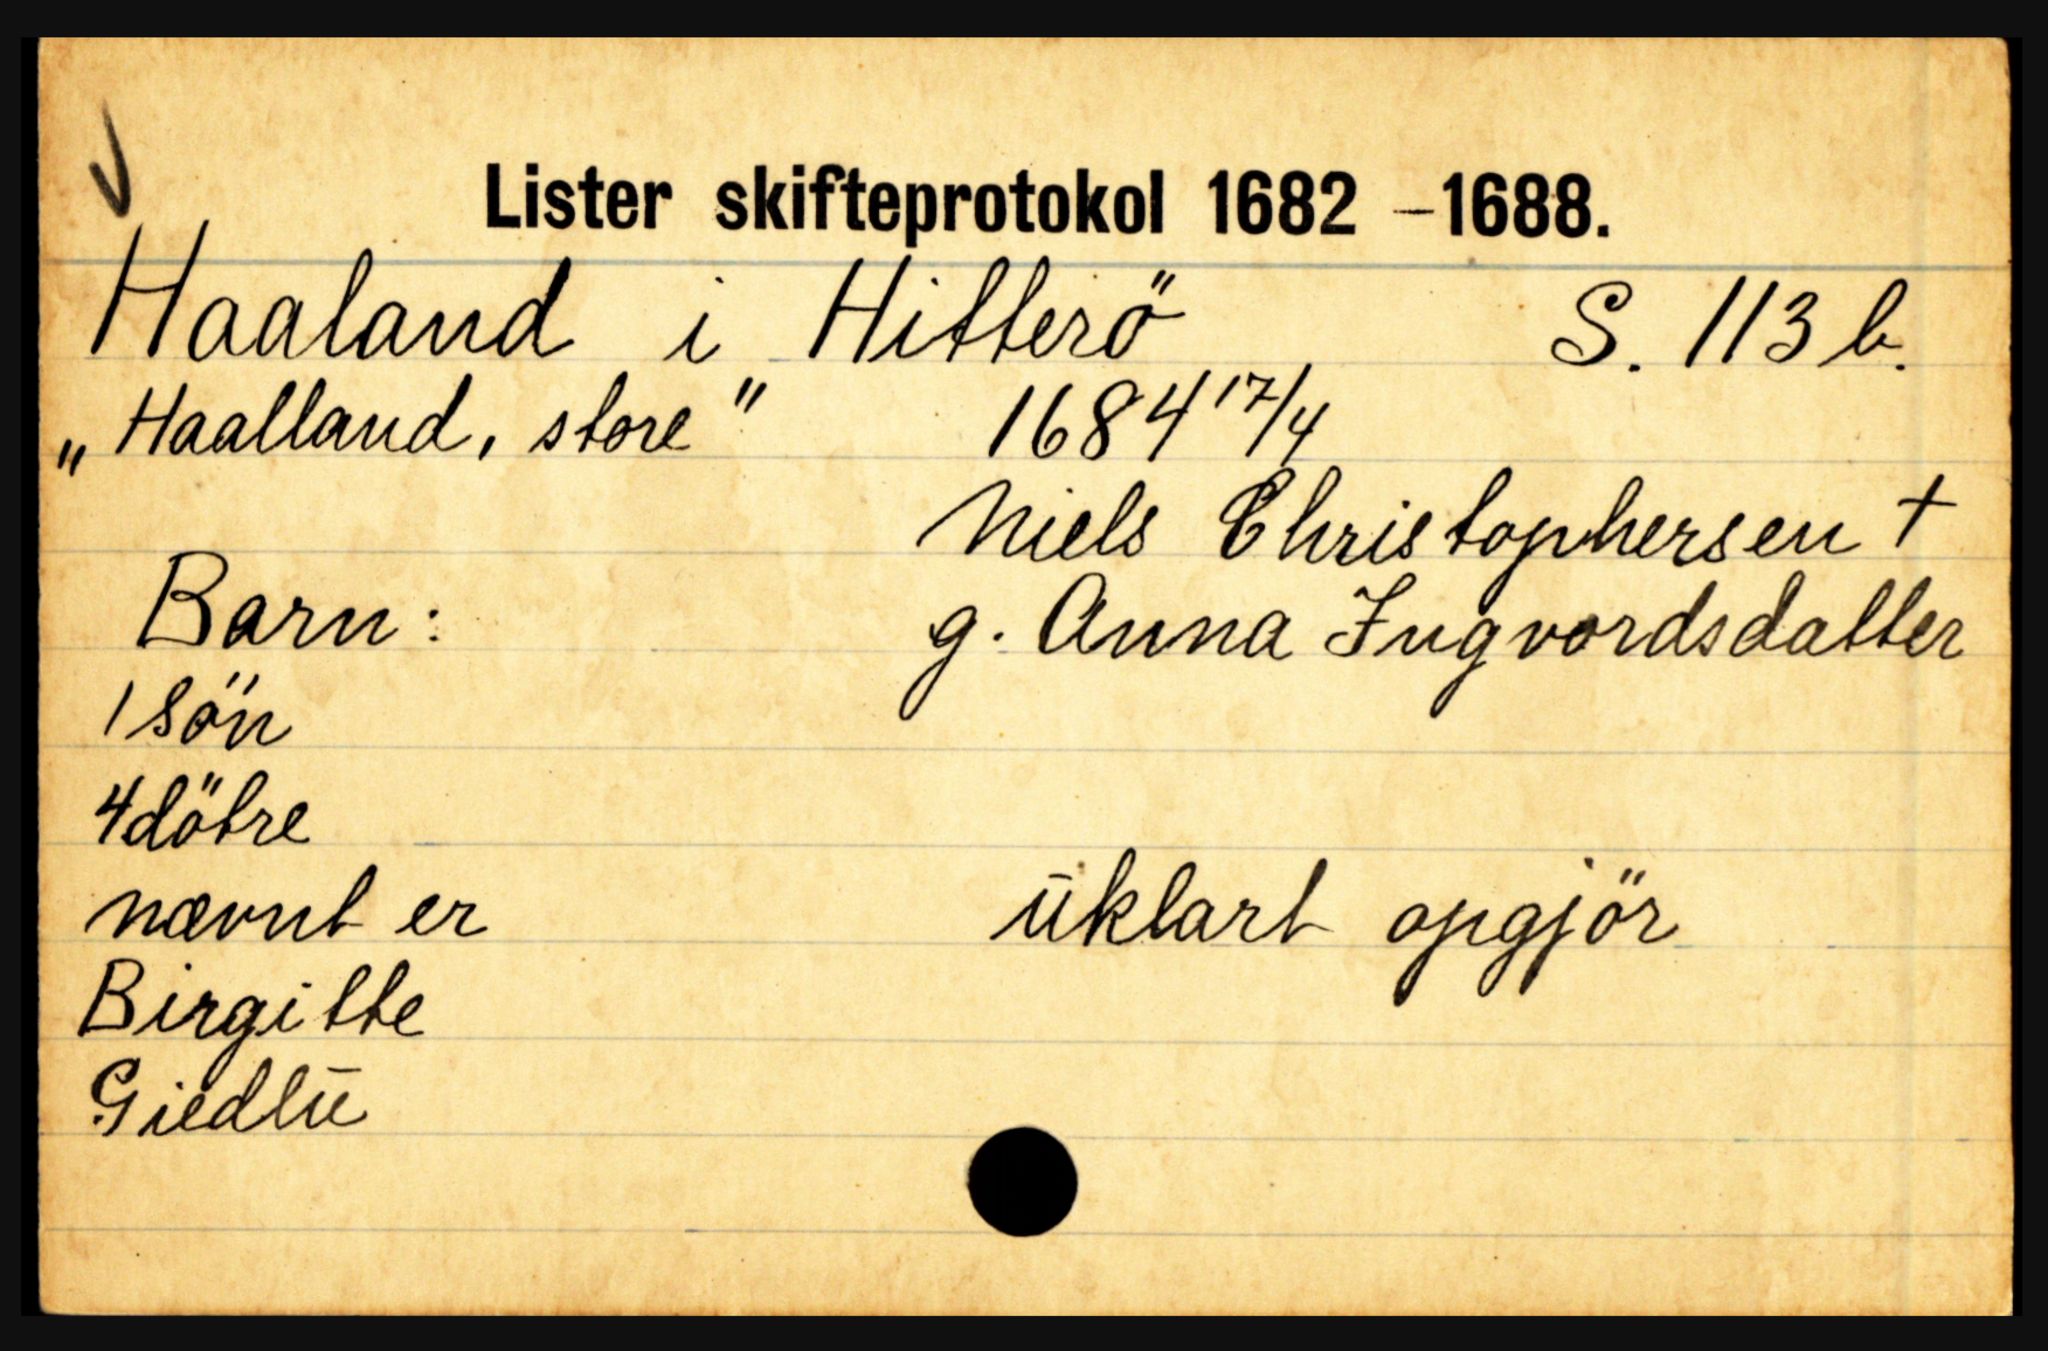 Lister skifteprotokol 1682 - 1688.
Haaland i Hitterö S. 113 b.
„Haalland, store" 1684 17/4
Niels Christophersen †
Barn: g. Anna Ingvordsdatter
1 sön
4 dötre
nævnt er uklart opgjör
Birgitte
Giedlu